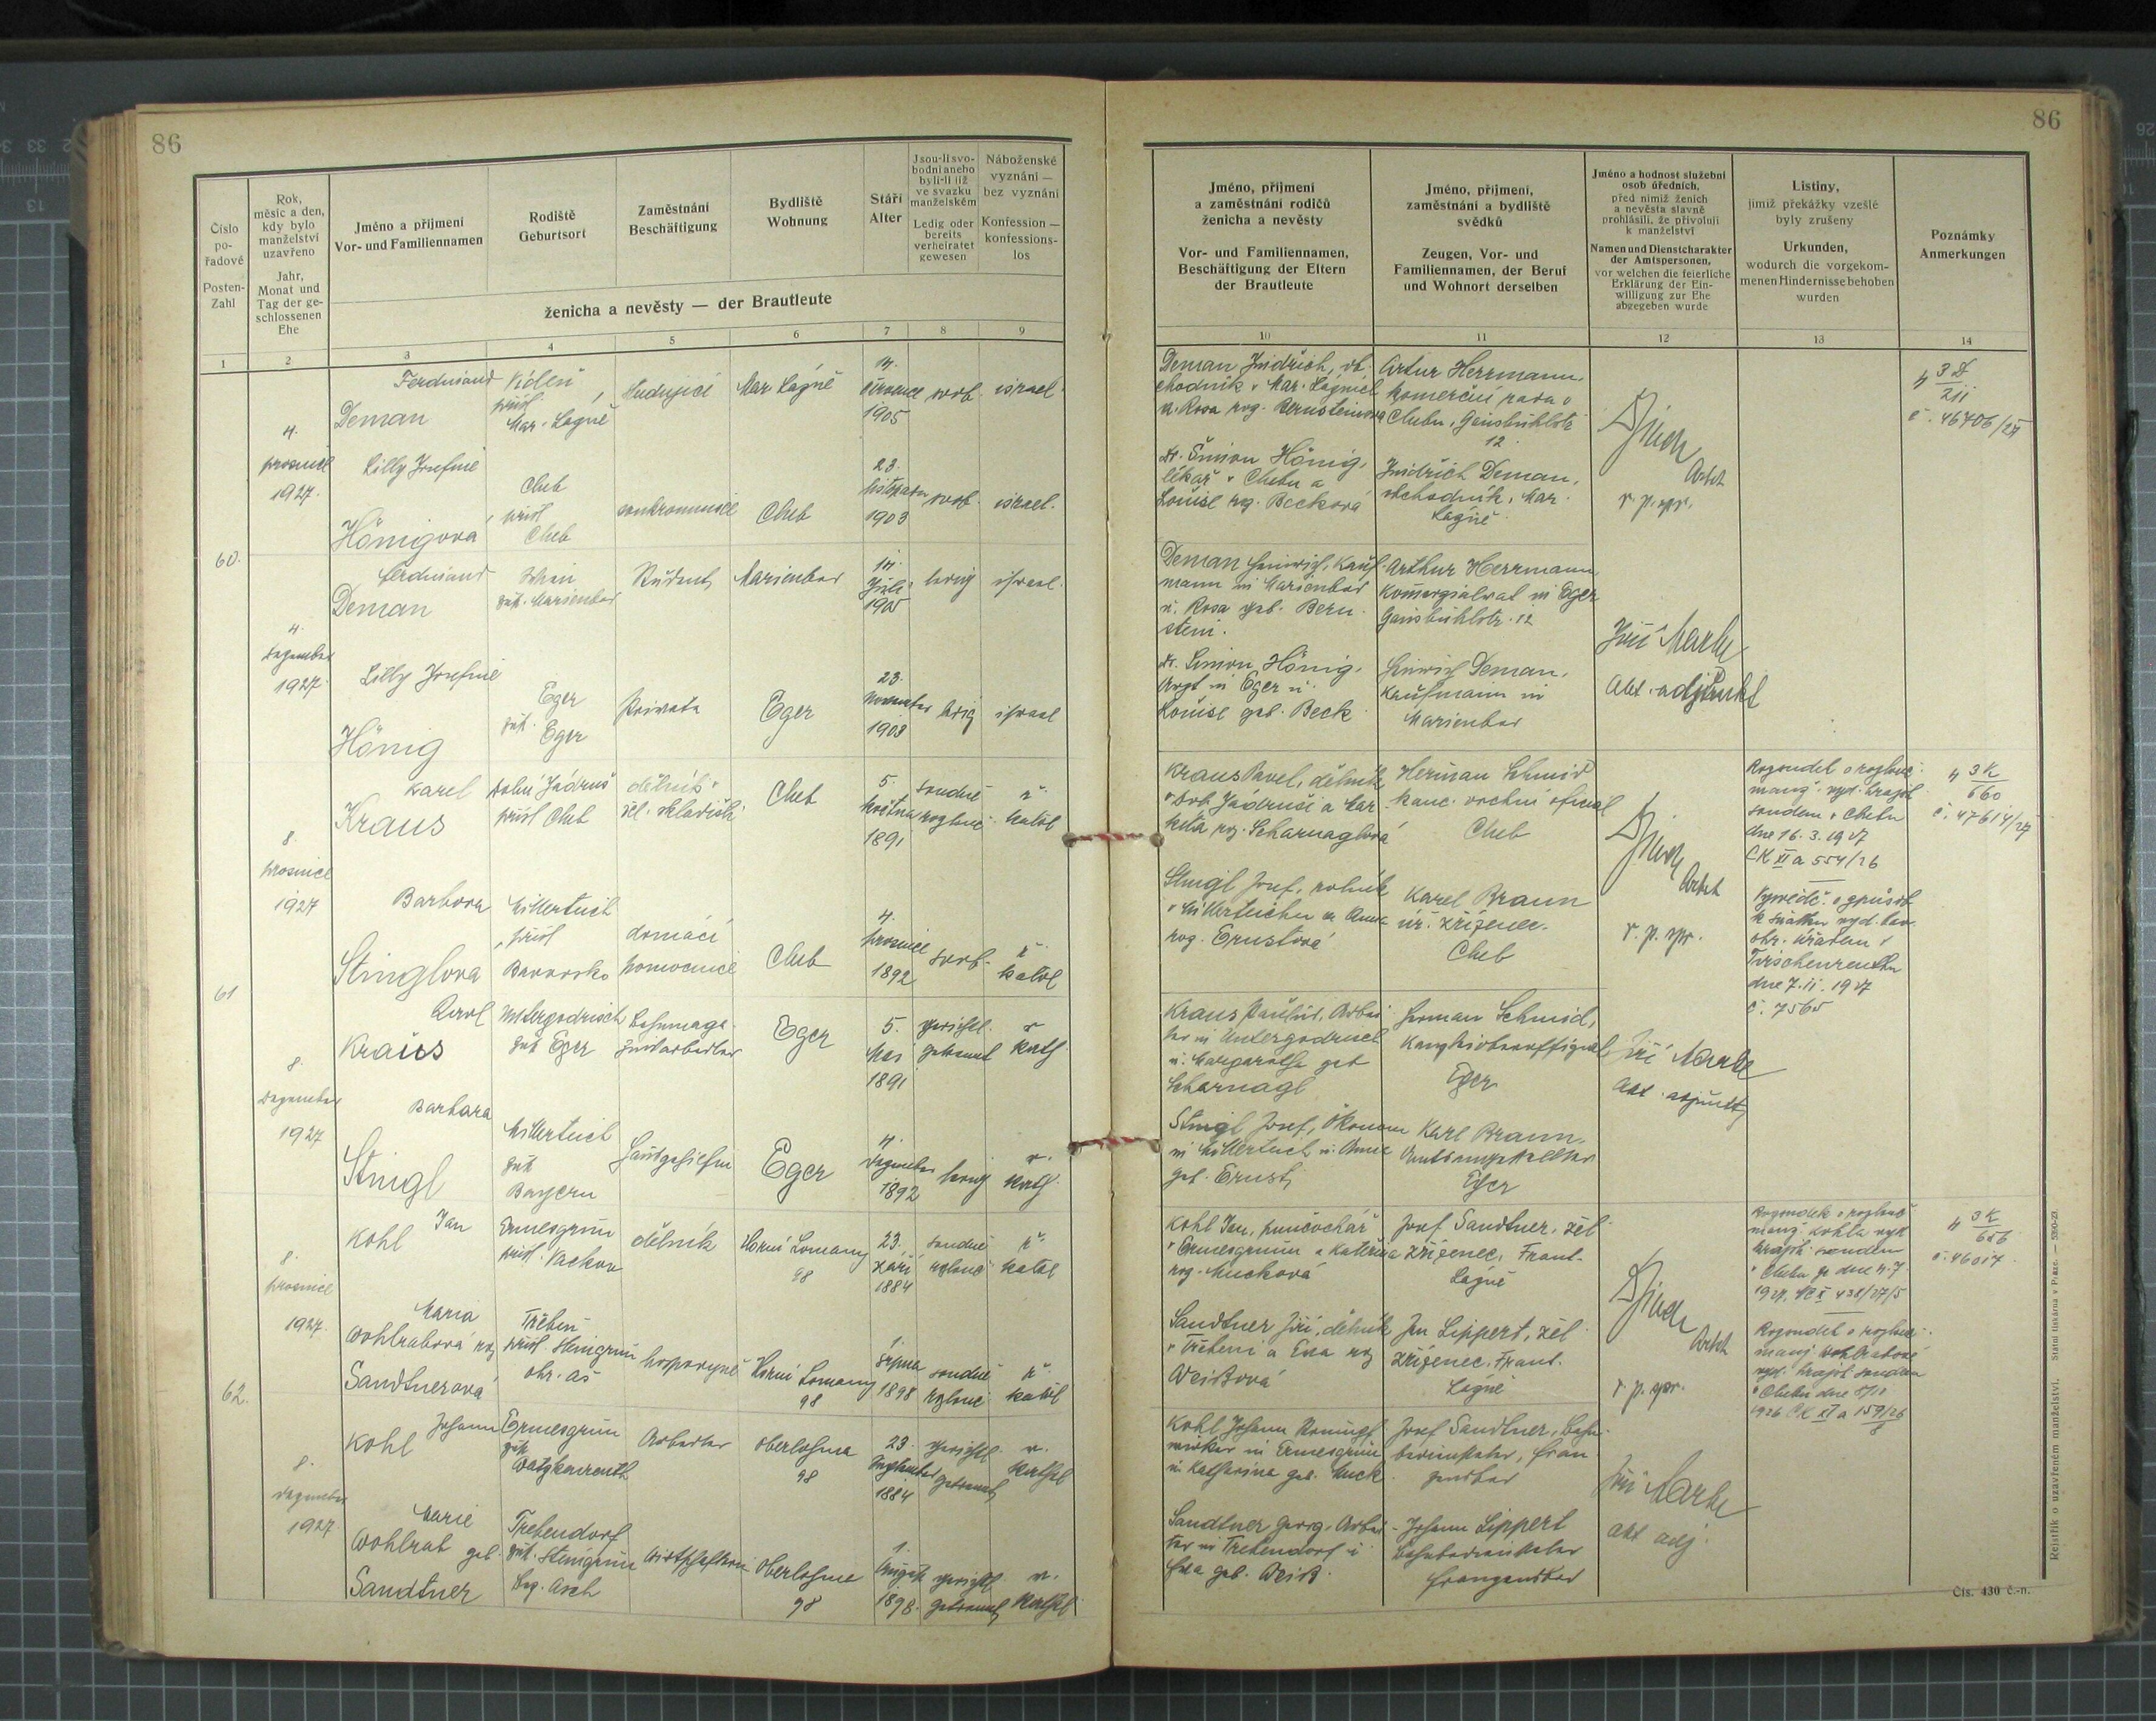 86
Číslo
po-
řadové
Posten-
Zahl
Rok,
měsíc a den,
kdy bylo
manželství
uzavřeno
Jahr,
Monat und
Tag der ge-
schlossenen
Ehe
Jméno a příjmení
Vor- und Familiennamen
Rodiště
Geburtsort
Zaměstnání
Beschäftigung
Bydliště
Wohnung
Stáří
Alter
Jsou-li svo-
bodni anebo
byli-li již
ve svazku
manželském
Ledig oder
bereits
verheiratet
gewesen
Náboženské
vyznání —
bez vyznání
Konfession —
konfessions-
los
ženicha a nevěsty — der Brautleute
1 2 3 4 5 6 7 8 9
60.
4.
prosince
1927.
Ferdinand
Deman
Vídeň
přísl.
Mar. Lázně
studující
Mar Lázně
července
1905
svob.
israel.
Lilly Josefine
Hönigova
Cheb
přísl
Cheb
soukromnice
Cheb
23.
listopadu
1903
svob.
israel.
4.
Dezember
1927.
Ferdinand
Deman
Wien
zust. Marienbad
Student
Marienbad
Juli
1905
ledig
israel.
Lilly Josefine
Hönig
Eger
zust. Eger
Private
Eger
23.
November
1903
ledig
israel
61
8.
prosince
1927
Karel
Kraus
Dolní Jádruš
přísl Cheb
dělník v
žel. skladišti
Cheb
5.
května
1891
soudně
rozlouč
ř.
katol
Barbora
Stinglova
Hillertuch
přísl
Bavorsko
domácí
pomocnice
Cheb
4.
prosince
1892
svob.
ř.
katol
8.
Dezember
1927
Karl
Kraus
Untergodrisch
zust Eger
Eger
5.
Mai
1891
gerichtl.
getrennt
r.
kath.
Barbara
Stingl
Hillertuch
zust
Bayern
Hausgehilfin
Eger
4.
Dezember
1892
ledig
r.
kath.
62.
8.
prosince
1927.
Jan
Kohl
Ermesgrün
přísl. Vackov
dělník
Horní Lomany
98
23.
září
1884
soudně
rozlouč
ř.
katol
Maria
Wohlrabová roz
Sandtnerová
Třebeň
přísl. Steingrün
okr. Aš
hospodyně
Horní Lomany
98
1.
srpna
1898
soudně
rozlouč
ř.
katol
8.
Dezember
1927.
Johann
Kohl
Ermesgrün
zust.
Watzkenreuth
Arbeiter
Oberlohma
98
23.
September
1884
gerichtl.
getrennt
r.
kathol
Marie
Wohlrab geb.
Sandtner
Trebendorf
zust. Steingrün
Bez. Asch
Wirtschafterin
Oberlohma
98
1.
August
1898.
gerichtl.
getrennt
r.
kathol
86
Jméno, příjmení
a zaměstnání rodičů
ženicha a nevěsty
Vor- und Familiennamen,
Beschäftigung der Eltern
der Brautleute
Jméno, příjmení,
zaměstnání a bydliště
svědků
Zeugen, Vor- und
Familiennamen, der Beruf
und Wohnort derselben
Jméno a hodnost služební
osob úředních,
před nimiž ženich
a nevěsta slavně
prohlásili, že přivolují
k manželství
Namen und Dienstcharakter
der Amtspersonen,
vor welchen die feierliche
Erklärung der Ein-
willigung zur Ehe
abgegeben wurde
Listiny,
jimiž překážky vzešlé
byly zrušeny
Urkunden,
wodurch die vorgekom-
menen Hindernisse behoben
wurden
Poznámky
Anmerkungen
10 11 12 13 14
Deman Jindřich, ob
chodník v Mar. Lázních
a Rosa roz. Bernsteinova
Artur Herrmann,
komerční rada v
Chebu, Gänsbühlstr
12.
3 D
211
č. 46406/27
Dr. Šimon Hönig,
lékař v Chebu a
Louise roz. Becková
Jindřich Deman,
obchodník, Mar.
Lázně.
r. p. spr.
Deman Heinrich, Kauf-
mann in Marienbad
u. Rosa geb. Bern-
stein.
Arthur Herrmann
Kommerzialrat in Eger
Gänsbühlstr. 12
Dr. Simon Hönig,
Arzt in Eger u.
Louise geb. Beck
Heinrich Deman,
Kaufmann in
Marienbad
Akt. adjunkt
Kraus Pavel, dělník
v Dol. Jádruši a Mar-
keta roz. Scharnaglová
Herman Schmid
kanc. vrchní oficiál
Cheb
Rozsudek o rozlouč.
manž. vyd. krajsk.
soudem v Chebu
dne 16. 3. 1927
CK XI a 554/26
3 K
660
č. 47614/27
Stingl Josef, rolník
v Hillertuchu a Anna
roz. Ernstová
Karel Braun
úř. zřízenec.
Cheb
r. p. spr.
Vysvědč. o způsob.
k sňatku vyd. bav.
okr. úřadem v
Tirschenreuthu
dne 7. 11. 1927
č. 7565
Kraus Paulus, Arbei-
ter in Untergodrisch
u. Margaretha geb
Scharnagl
Herman Schmid,
Kanzleioberoffizial
Eger
Stingl Josef, Ökonom
in Hillertuch u. Anna
geb. Ernst
Karl Braun,
Amtsangestellter
Eger
Akt. adjunkt
Kohl Jan, punčochář
v Ermesgrünu a Kateřina
roz. Mucková
Josef Sandtner, žel.
zřízenec, Frant.
Lázně
Rozsudek o rozlouč
manž. Kohla vyd
krajsk. soudem
v Chebu
3 K
656
č. 46017
Sandtner Jiří, dělník
v Třebeni a Eva roz
Weißová
Jan Lippert, žel
zřízenec, Frant.
Lázně
r. p. spr.
Rozsudek o rozlouč.
manž. Wohlrabové
vyd. krajsk. soudem
v Chebu dne 8/10
1926 CK XI a 159/26
Kohl Johann
wirker in Ermesgrün
u. Katharina geb. Muck
Josef Sandtner, Bahn-
bediensteter, Fran
zensbad
Sandtner Georg, Arbei-
ter in Trebendorf u
Eva geb. Weiß.
Johann Lippert
Bahnbediensteter
Franzensbad
akt adj.
Rejstřík o uzavřeném manželství. Státní tiskárna v Praze.
Čís. 430 č.-n.